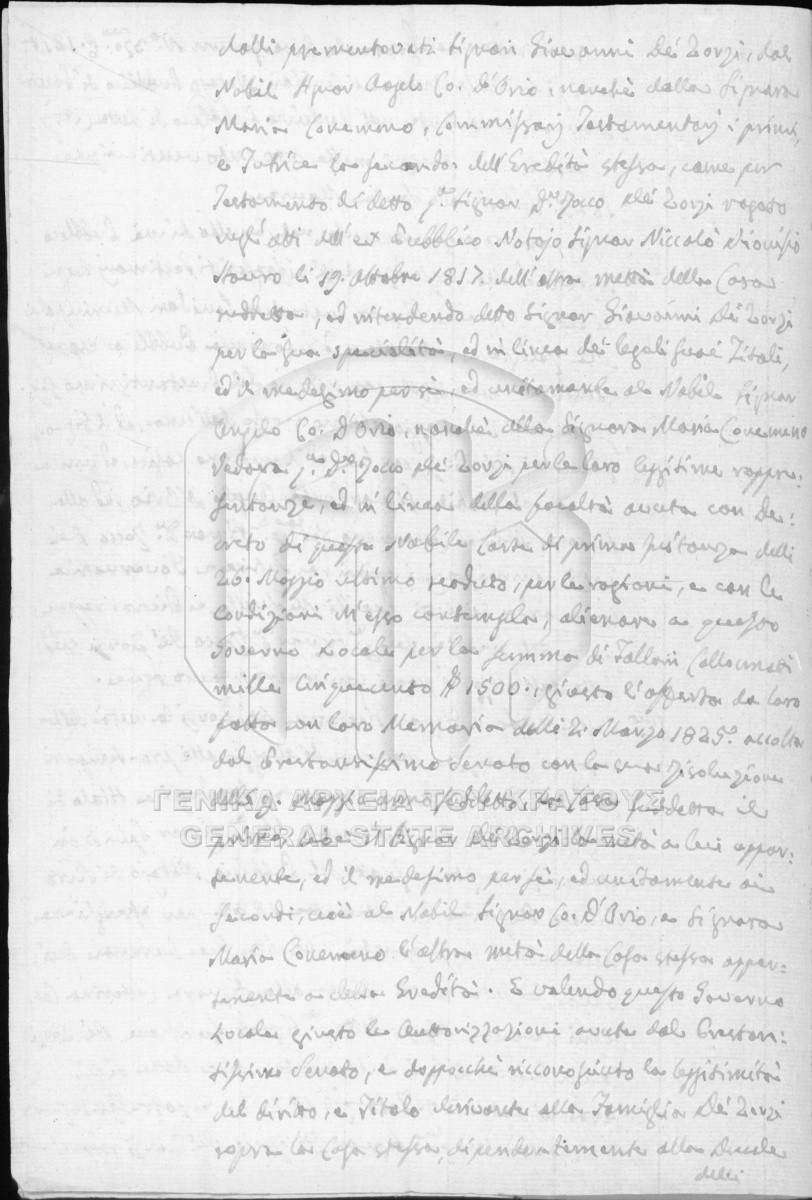 dalli prementovati Signori Giovanni Dei Zorzi, dal
Nobil Signor Angelo Co. D'Orio, nonchè dalla Signora
Maria Comeneno, Commissarj Testamentarj i primi,
e Tutrice la seconda dell'Eredità stessa, come per
Testamento di detto q.m Signor D.r Zacco Dei Zorzi rogato
negli atti dell'ex Pubblico Notajo Signor Niccolò Dionisio
Stauro li 19. Ottobre 1817. dell'altra mettà della Casa
suddetta, ed intendendo detto Signor Giovanni Dei Zorzi
per la sua specialità, ed in linea dei legali suoi Titoli,
ed il medesimo per sè, ed unitamente al Nobile Signor
Angelo Co. D'Orio, nonchè della Signora Maria Comeneno
Vedova q.m D.r Zacco Dei Zorzi per le loro legittime rappre:
sentanze, ed in linea della facoltà avuta con De:
creto di questa Nobile Corte di prima Istanza delli
26. Maggio ultimo scaduto, per le ragioni, e con le
condizioni in esso contemplate, alienare a questo
Governo Locale per la somma di Tallari Collonnati
mille cinquecento 1500., giusto l'offerta da loro
fatta con loro Memoria delli 21. Marzo 1825. accolta
dal Prestantissimo Senato con la sua risoluzione
delli 9. Maggio anno suddetto, la Casa suddetta il
primo, cioè il Signor Dei Zorzi la metà a lui appar:
tenente, ed il medesimo per sè, ed unitamente ai
secondi, cioè al Nobil Signor Co. D'Orio, e Signora
Maria Comeneno l'altra metà della Casa stessa appar:
tenente a detta Eredità. E valendo questo Governo
Locale giusto le Auttorizzazioni avute dal Prestan:
tissimo Senato, e doppocchè riconosciuto la leggitimità
del diritto, e Titolo derivante alla Famiglia Dei Zorzi
sopra la Casa stessa, dipendentemente alla Ducale
delli
ΓΕΝΙΚΑ ΑΡΧΕΙΑ ΤΟΥ ΚΡΑΤΟΥΣ
GENERAL STATE ARCHIVES